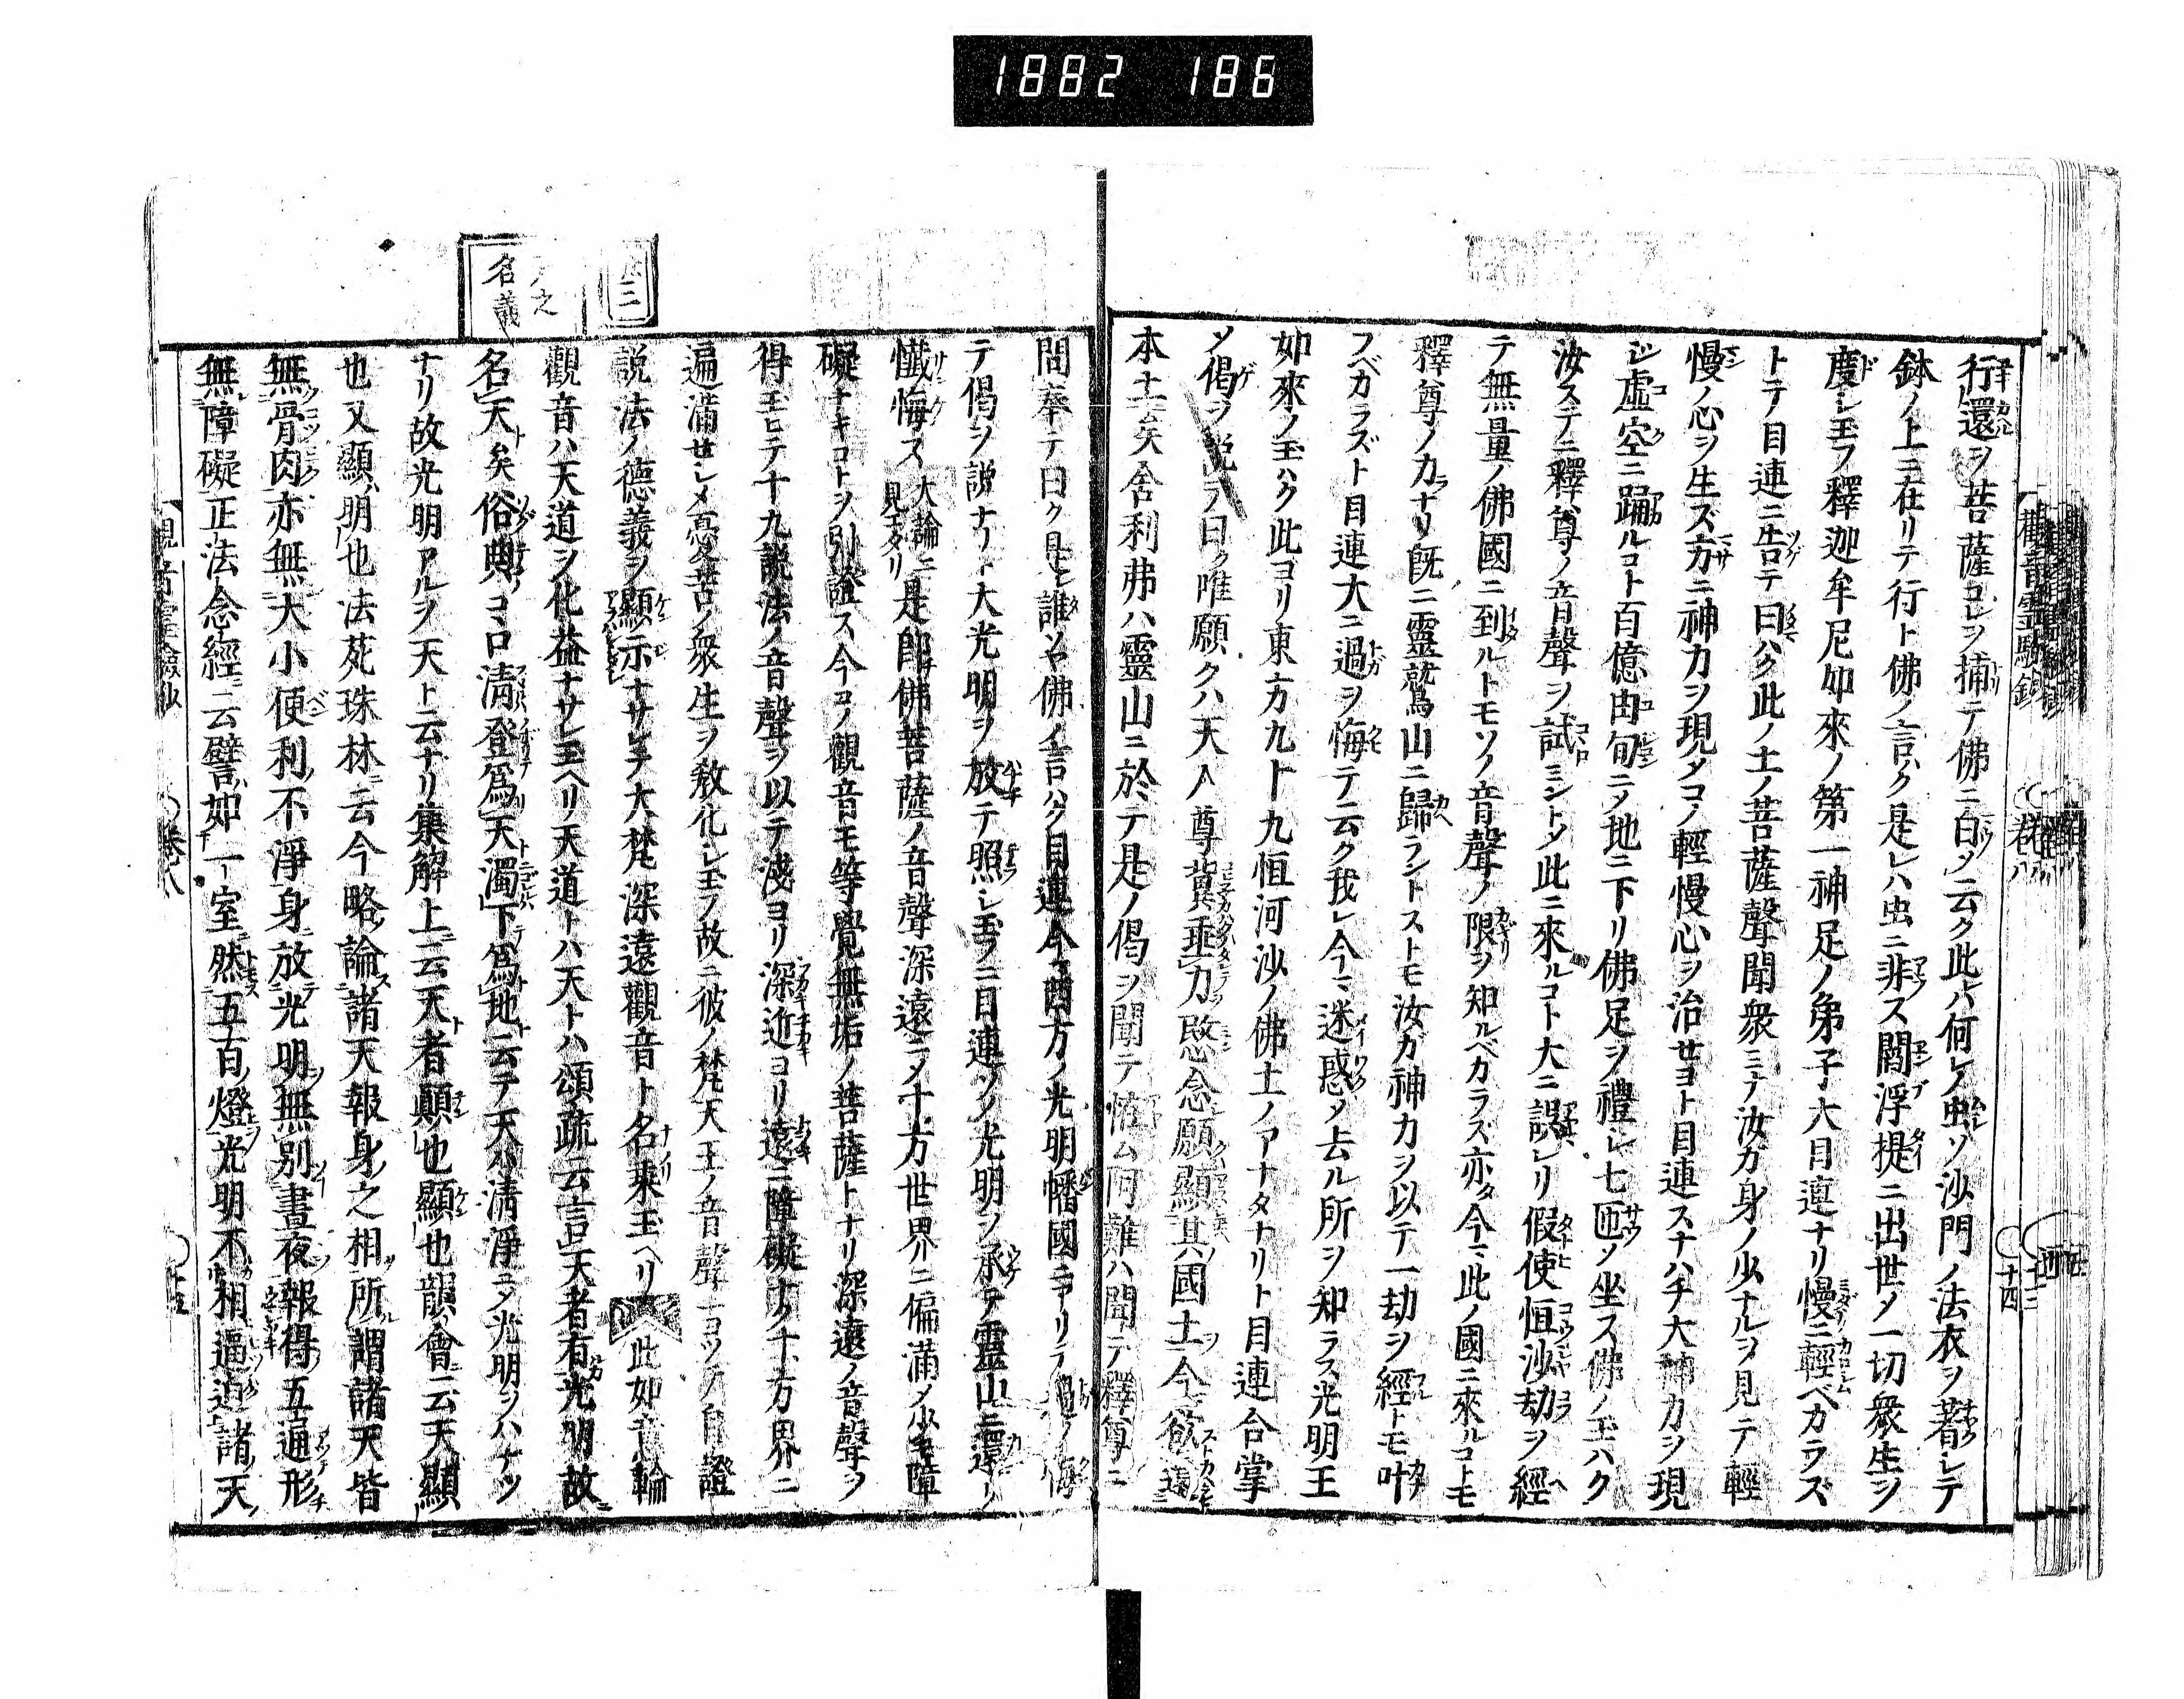 1882 186
行還ヲ菩薩コレヲ捕テ佛ニ白メ云ク此レハ何レノ虫ソ沙門ノ法衣ヲ著シテ
鉢ノ上ニ在リテ行ト佛ノ言ハク是レハ虫ニ非ス閻浮提ニ出世メ一切衆生ヲ
度シ玉フ釋迦牟尼如來ノ第一神足ノ弟子大目連ナリ慢ニ輕ベカラズ
トテ目連ニ告テ曰ハク此ノ土ノ菩薩聲聞衆ミナ汝カ身ノ少ナルヲ見テ輕
慢ノ心ヲ生ズ方ニ神力ヲ現タコノ輕慢心ヲ治セヨト目連スナハチ大神力ヲ現
シ虚空ニ踊ルコト百億由旬ニメ地ニ下リ佛足ヲ禮シ七匝メ坐ス佛ノ玉ハク
汝ステニ釋尊ノ音聲ヲ試ミントメ此ニ來ルコト大ニ誤レリ假使恒沙劫ヲ經
テ無量ノ佛國ニ到ルトモソノ音聲ノ限ヲ知ルベカラズ亦タ今マ此ノ國ニ來ルコトモ
釋尊ノ力ラナリ既ニ靈鷲山ニ歸ラントストモ汝ガ神力ヲ以テ一劫ヲ經トモ叶
フベカラズト目連大ニ過ヲ悔テ云ク我レ今マ迷惑メ去ル所ヲ知ラス光明王
如來ノ玉ハク此ヨリ東方九十九恒河沙ノ佛土ノアナタナリト目連合掌
メ偈ヲ説テ曰ク唯願クハ天人尊冀垂力愍念願顯其國土今欲還
本土云矣舍利弗ハ靈山ニ於テ是ノ偈ヲ聞テ阿難ハ聞テ釋尊ニ
問奉テ曰ク是レ誰ソヤ佛ノ言ハク目連今マ西方ノ光明幡國ニアリテ過ヲ悔
テ偈ヲ説ナリト大光明ヲ放テ照シ玉フニ目連ソノ光明ヲ承テ靈山ニ還リ
懺悔ス大論ニ見エタリ是レ即チ佛菩薩ノ音聲深遠ニメ十方世界ニ偏滿メ少モ障
礙ナキコトヲ引證ス今コノ觀音モ等覺無垢ノ菩薩トナリ深遠ノ音聲ヲ
得玉ヒテ十九説法ノ音聲ヲ以テ淺ヨリ深近ヨリ遠ニ障礙ナク十方界ニ
遍滿セシメ憂苦ノ衆生ヲ敎化シ玉フ故ニ彼ノ梵天王ノ音聲ニヨソヘテ自證
説法ノ德義ヲ顯示ナサレテ大梵深遠觀音ト名乘玉ヘリ 此如意輪
觀音ハ天道ヲ化益ナサレ玉ヘリ天道トハ天トハ頌疏云言天者有光明故
名天矣俗典ノコヽロ清登爲天濁下爲地ト云テ天ハ清淨ニメ光明ヲハナツ
ナリ故光明アルヲ天ト云ナリ集解上云天者顚也顯也韻會云天顯
也又顯明也法苑珠林ニ云今略論諸天報身之相所謂諸天皆
無骨肉亦無大小便利不淨身放光明無別晝夜報得五通形
無障礙正法念經ニ云譬如一室然五百燈光明不相逼迫諸天
之
名義
觀音靈驗鈔 卷八 十四